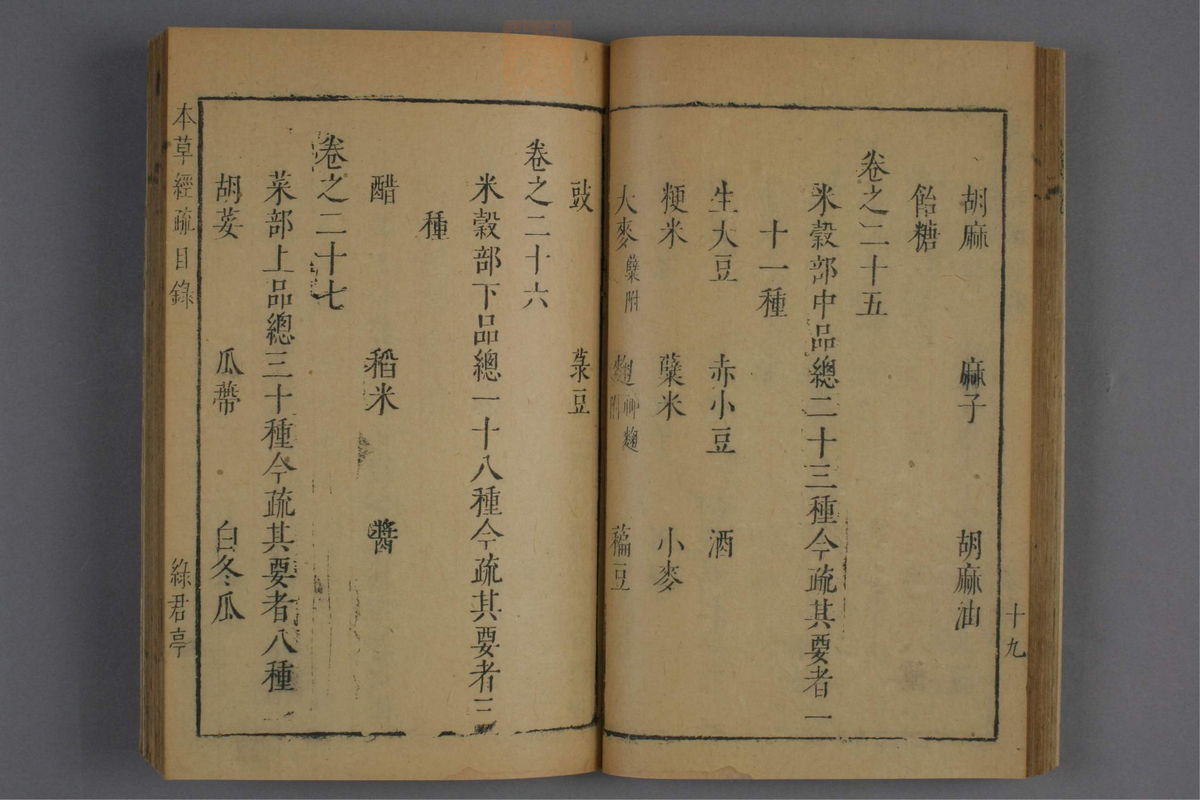 胡麻　麻子　胡麻油
飴糖
卷之二十五
米穀部中品總二十三種今疏其要者一
十一種
生大豆　赤小豆　酒
粳米　糵米　小麥
大麥糵附　麴　神麴附　藊豆
十九
豉　菉豆
卷之二十六
米穀部下品總一十八種今疏其要者三
種
醋　稻米　醬
卷之二十七
菜部上品總三十種今疏其要者八種
胡荽　瓜蔕　白冬瓜
本草經疏目錄　綠君亭